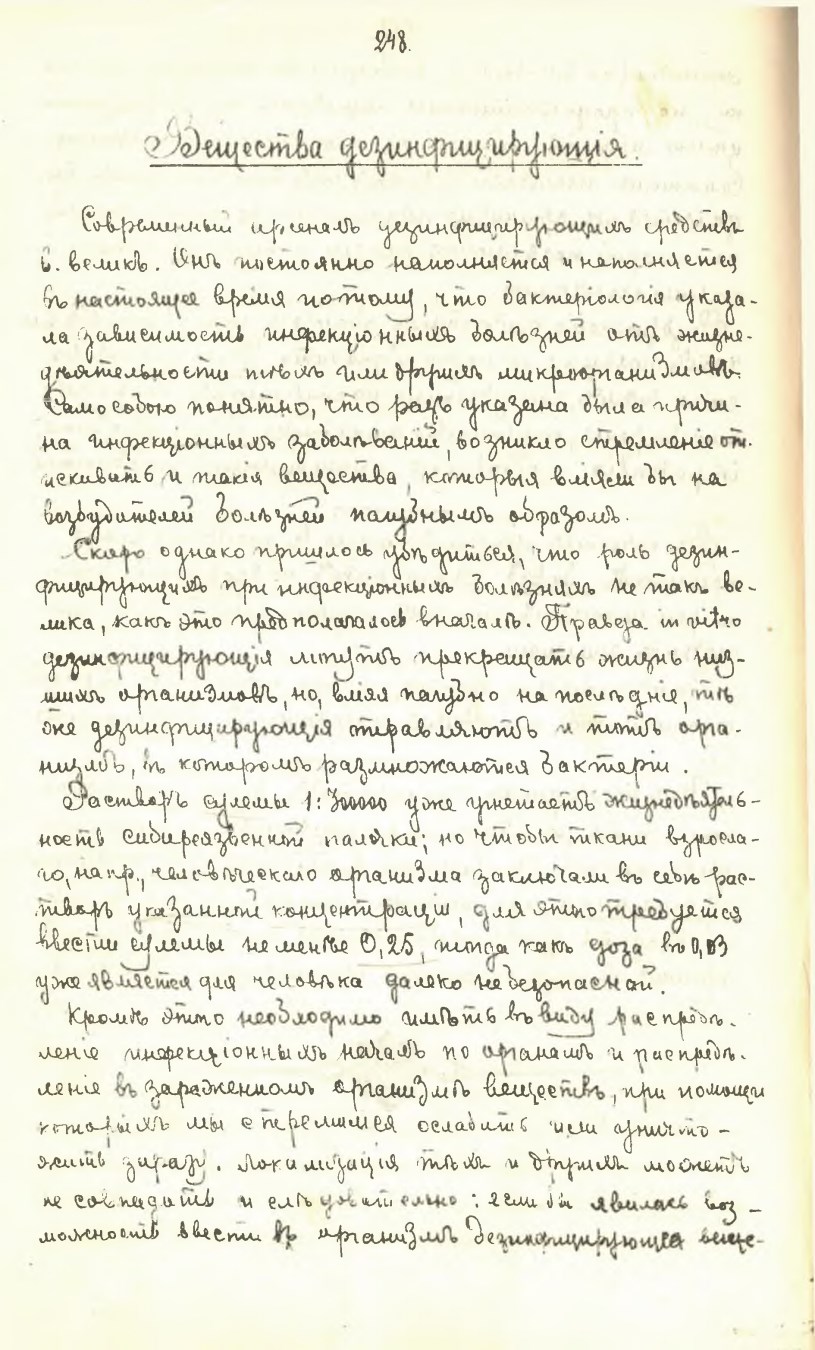 248.
Вещества дезинфицирующія.
Современный арсеналъ дезинфицирующихъ средствъ
б. великъ. Онъ постоянно наполняется и наполняется
въ настоящее время потому, что бактеріологія указа-
ла зависимость инфекціонныхъ болѣзней отъ жизне-
дѣятельности тѣхъ или другихъ микроорганизмовъ.
Само собою понятно, что разъ указана была причи-
на инфекціонныхъ заболѣваній, возникло стремленіе от-
искивать и такія вещества, которыя вліяли бы на
возбудителей болѣзней пагубнымъ образомъ.
Скоро однако пришлось убѣдиться, что роль дезин-
фицирующихъ при инфекціонныхъ болѣзняхъ не такъ ве-
лика, какъ это предполагалось вначалѣ. Правда in vitro
дезинфицирующія могутъ прекращать жизнь низ-
шихъ организмовъ, но, вліяя пагубно на послѣднія, тѣ
же дезинфицирующія отравляютъ и тотъ орга-
низмъ, въ которомъ размножаются бактеріи.
Растворъ сулемы 1:300000 уже угнетаетъ жизнедѣятель-
ность сибиреязвенной палочки; но чтобы ткани взросла-
го, напр., человѣческаго организма заключали въ себѣ рас-
творъ указанной концентраціи, для этого требуется
ввести сулемы не менѣе 0,25, тогда какъ доза въ 0,03
уже является для человѣка далеко не безопасной.
Кромѣ этого необходимо имѣть въ виду распредѣ-
леніе инфекціонныхъ началъ по органамъ и распредѣ-
леніе въ зараженномъ организмѣ веществъ, при помощи
которыхъ мы стремимся ослабить или уничто-
жить заразу. Локализація тѣхъ и другихъ можетъ
не совпадать и слѣдовательно: если бы явилась воз-
можность ввести въ организмъ дезинфицирующія веще-